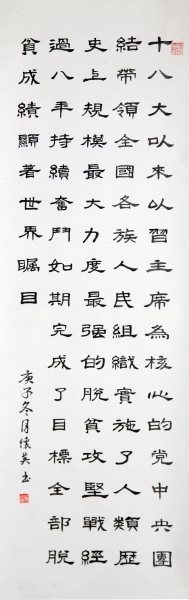 十八大以来以習主席為核心的党中央團
結帶領全國各族人民組織實施了人類歷
史上規模最大力度最强的脱貧攻堅戰經
過八年持續奮鬥如期完成了目標全部脱
貧成績顯著世界矚目
庚子冬月懷英书